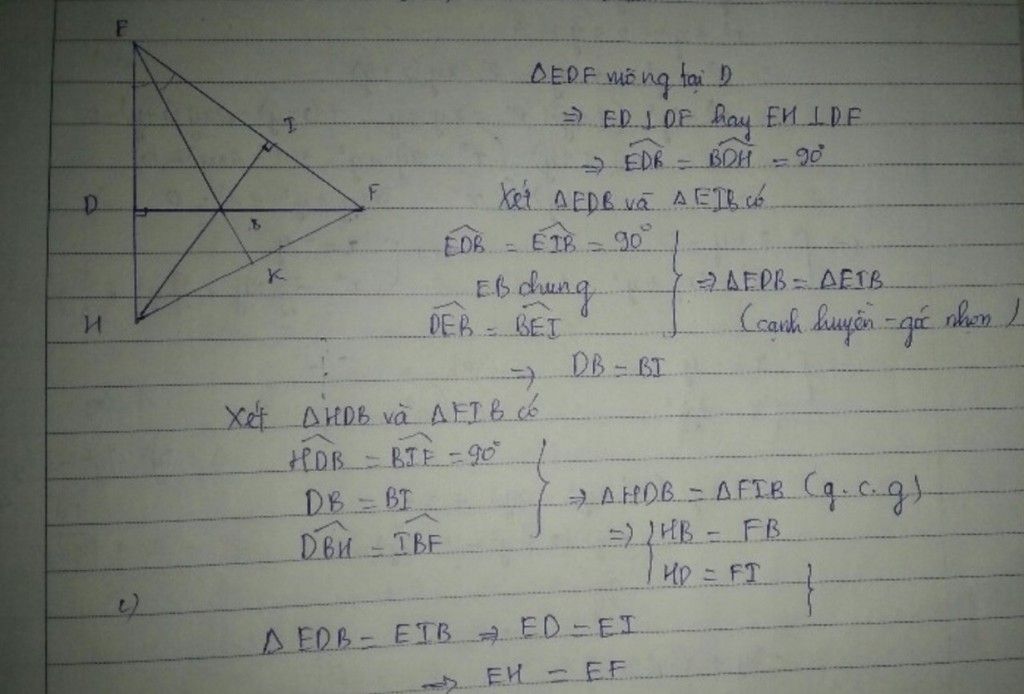 E
I
D
F
B
K
H
ΔEDF vuông tại D
=> ED ⊥ DF hay EH ⊥ DF
=> EDB = BDH = 90°
Xét ΔEDB và ΔEIB có
EDB = EIB = 90°
EB chung
DEB = BEI
=> ΔEDB = ΔEIB
(cạnh huyền - góc nhọn)
=> DB = BI
Xét ΔHDB và ΔFIB có
HDB = BIF = 90°
DB = BI
DBH = IBF
=> ΔHDB = ΔFIB (g.c.g)
=> HB = FB
HD = FI
c)
ΔEDB = EIB => ED = EI
=> EH = EF